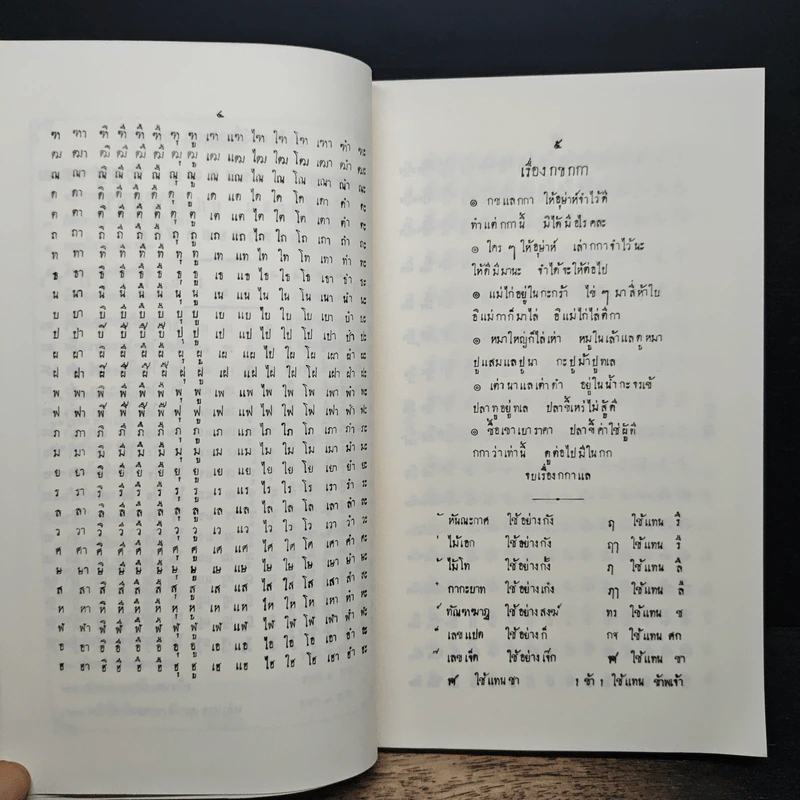 ๔
ฑ ฑา ฑิ ฑี ฑึ ฑื ฑุ ฑู เฑ แฑ ไฑ ใฑ โฑ เฑา ฑำ ฑะ
ฒ ฒา ฒิ ฒี ฒึ ฒื ฒุ ฒู เฒ แฒ ไฒ ใฒ โฒ เฒา ฒำ ฒะ
ณ ณา ณิ ณี ณึ ณื ณุ ณู เณ แณ ไณ ใณ โณ เณา ณำ ณะ
ด ดา ดิ ดี ดึ ดื ดุ ดู เด แด ได ใด โด เดา ดำ ดะ
ต ตา ติ ตี ตึ ตื ตุ ตู เต แต ไต ใต โต เตา ตำ ตะ
ถ ถา ถิ ถี ถึ ถื ถุ ถู เถ แถ ไถ ใถ โถ เถา ถำ ถะ
ท ทา ทิ ที ทึ ทื ทุ ทู เท แท ไท ใท โท เทา ทำ ทะ
ธ ธา ธิ ธี ธึ ธื ธุ ธู เธ แธ ไธ ใธ โธ เธา ธำ ธะ
น นา นิ นี นึ นื นุ นู เน แน ไน ใน โน เนา นำ นะ
บ บา บิ บี บึ บื บุ บู เบ แบ ไบ ใบ โบ เบา บำ บะ
ป ปา ปิ ปี ปึ ปื ปุ ปู เป แป ไป ใป โป เปา ปำ ปะ
ผ ผา ผิ ผี ผึ ผื ผุ ผู เผ แผ ไผ ใผ โผ เผา ผำ ผะ
ฝ ฝา ฝิ ฝี ฝึ ฝื ฝุ ฝู เฝ แฝ ไฝ ใฝ โฝ เฝา ฝำ ฝะ
พ พา พิ พี พึ พื พุ พู เพ แพ ไพ ใพ โพ เพา พำ พะ
ฟ ฟา ฟิ ฟี ฟึ ฟื ฟุ ฟู เฟ แฟ ไฟ ใฟ โฟ เฟา ฟำ ฟะ
ภ ภา ภิ ภี ภึ ภื ภุ ภู เภ แภ ไภ ใภ โภ เภา ภำ ภะ
ม มา มิ มี มึ มื มุ มู เม แม ไม ใม โม เมา มำ มะ
ย ยา ยิ ยี ยึ ยื ยุ ยู เย แย ไย ใย โย เยา ยำ ยะ
ร รา ริ รี รึ รื รุ รู เร แร ไร ใร โร เรา รำ ระ
ล ลา ลิ ลี ลึ ลื ลุ ลู เล แล ไล ใล โล เลา ลำ ละ
ว วา วิ วี วึ วื วุ วู เว แว ไว ใว โว เวา วำ วะ
ศ ศา ศิ ศี ศึ ศื ศุ ศู เศ แศ ไศ ใศ โศ เศา ศำ ศะ
ษ ษา ษิ ษี ษึ ษื ษุ ษู เษ แษ ไษ ใษ โษ เษา ษำ ษะ
ส สา สิ สี สึ สื สุ สู เส แส ไส ใส โส เสา สำ สะ
ห หา หิ หี หึ หื หุ หู เห แห ไห ให โห เหา หำ หะ
ฬ ฬา ฬิ ฬี ฬึ ฬื ฬุ ฬู เฬ แฬ ไฬ ใฬ โฬ เฬา ฬำ ฬะ
อ อา อิ อี อึ อื อุ อู เอ แอ ไอ ใอ โอ เอา อำ อะ
ฮ ฮา ฮิ ฮี ฮึ ฮื ฮุ ฮู เฮ แฮ ไฮ ใฮ โฮ เฮา ฮำ ฮะ
๕
เรื่อง กข กกา
๏ กข แล กกา ให้อุษ่าห์จำไว้ดี
ทำแต่ กกานี้ มิได้มีอไรคละ
๏ ใคร ๆ ให้อุษ่าห์ เล่า กกา จำไว้นะ
ให้ดีมีมานะ จำได้จะให้ต่อไป
๏ แม่ไก่อยู่ในกะตร้า ไข่ ๆ มาสี่ห้าใบ
อีแม่กาก็มาไล่ อีแม่ไก่ไล่ตีกา
๏ หมาใหญ่ก็ไล่เห่า หมูในเล้าแลดูหมา
ปูแสมแลปูนา กะปูม้าปูทเล
๏ เต่านาแลเต่าดำ อยู่ในน้ำกะจรเข้
ปลาทูอยู่ทเล ปลาขี้เหร่ไม่สู้ดี
๏ ซื้อเขาเบาราคา ปลาขี้ค่าใช้ผู้ดี
กกาว่าเท่านี้ ดูต่อไปมีในกก
จบเรื่อง กกา แล
ั หันณะกาศ ใช้อย่าง กัง ฤ ใช้แทน ริ
่ ไม้เอก ใช้อย่าง กั่ง ฤๅ ใช้แทน รี
้ ไม้โท ใช้อย่าง กั้ง ฦ ใช้แทน ลิ
๋ กากะบาท ใช้อย่าง เก๋ง ฦๅ ใช้แทน ลื
์ ทัณฑฆาฏ ใช้อย่าง สงฆ์ ทร ใช้แทน ซ
็ เลขแปด ใช้อย่าง ก็ กจ ใช้แทน ศก
๊ เลขเจ็ด ใช้อย่าง เจ๊ก